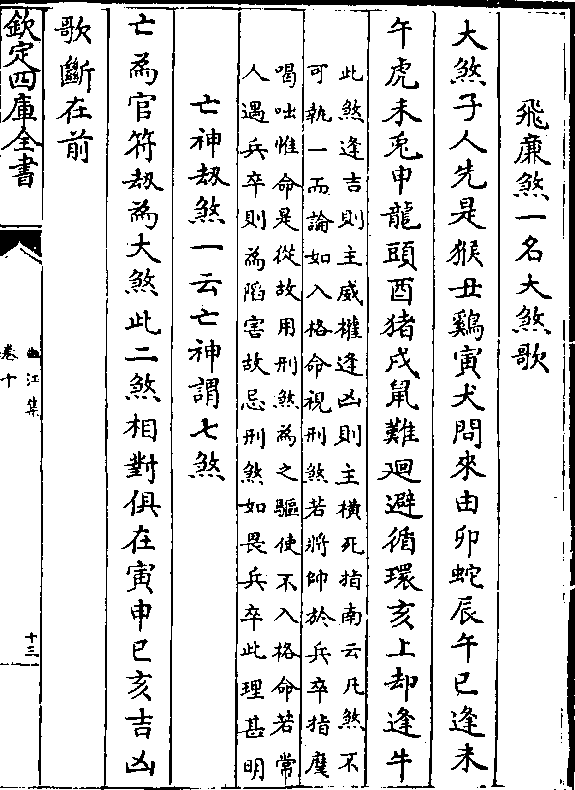 飛廉煞一名大煞歌
大煞子人先是猴丑鷄寅犬問來由卯蛇辰午巳逢未
午虎未兎申龍頭酉猪戌鼠難迴避循環亥上却逢牛
此煞逢吉則主威權逢凶則主橫死指南云凡煞不
可執一而論如入格命視刑煞若將帥於兵卒指麾
喝咄惟命是從故用刑煞為之驅使不入格命若常
人遇兵卒則為陷害故忌刑煞如畏兵卒此理甚明
亡神刼煞一云亡神謂七煞
亡為官符刼為大煞此二煞相對俱在寅申巳亥吉凶
歌斷在前
欽定四庫全書
江集
卷十
十三